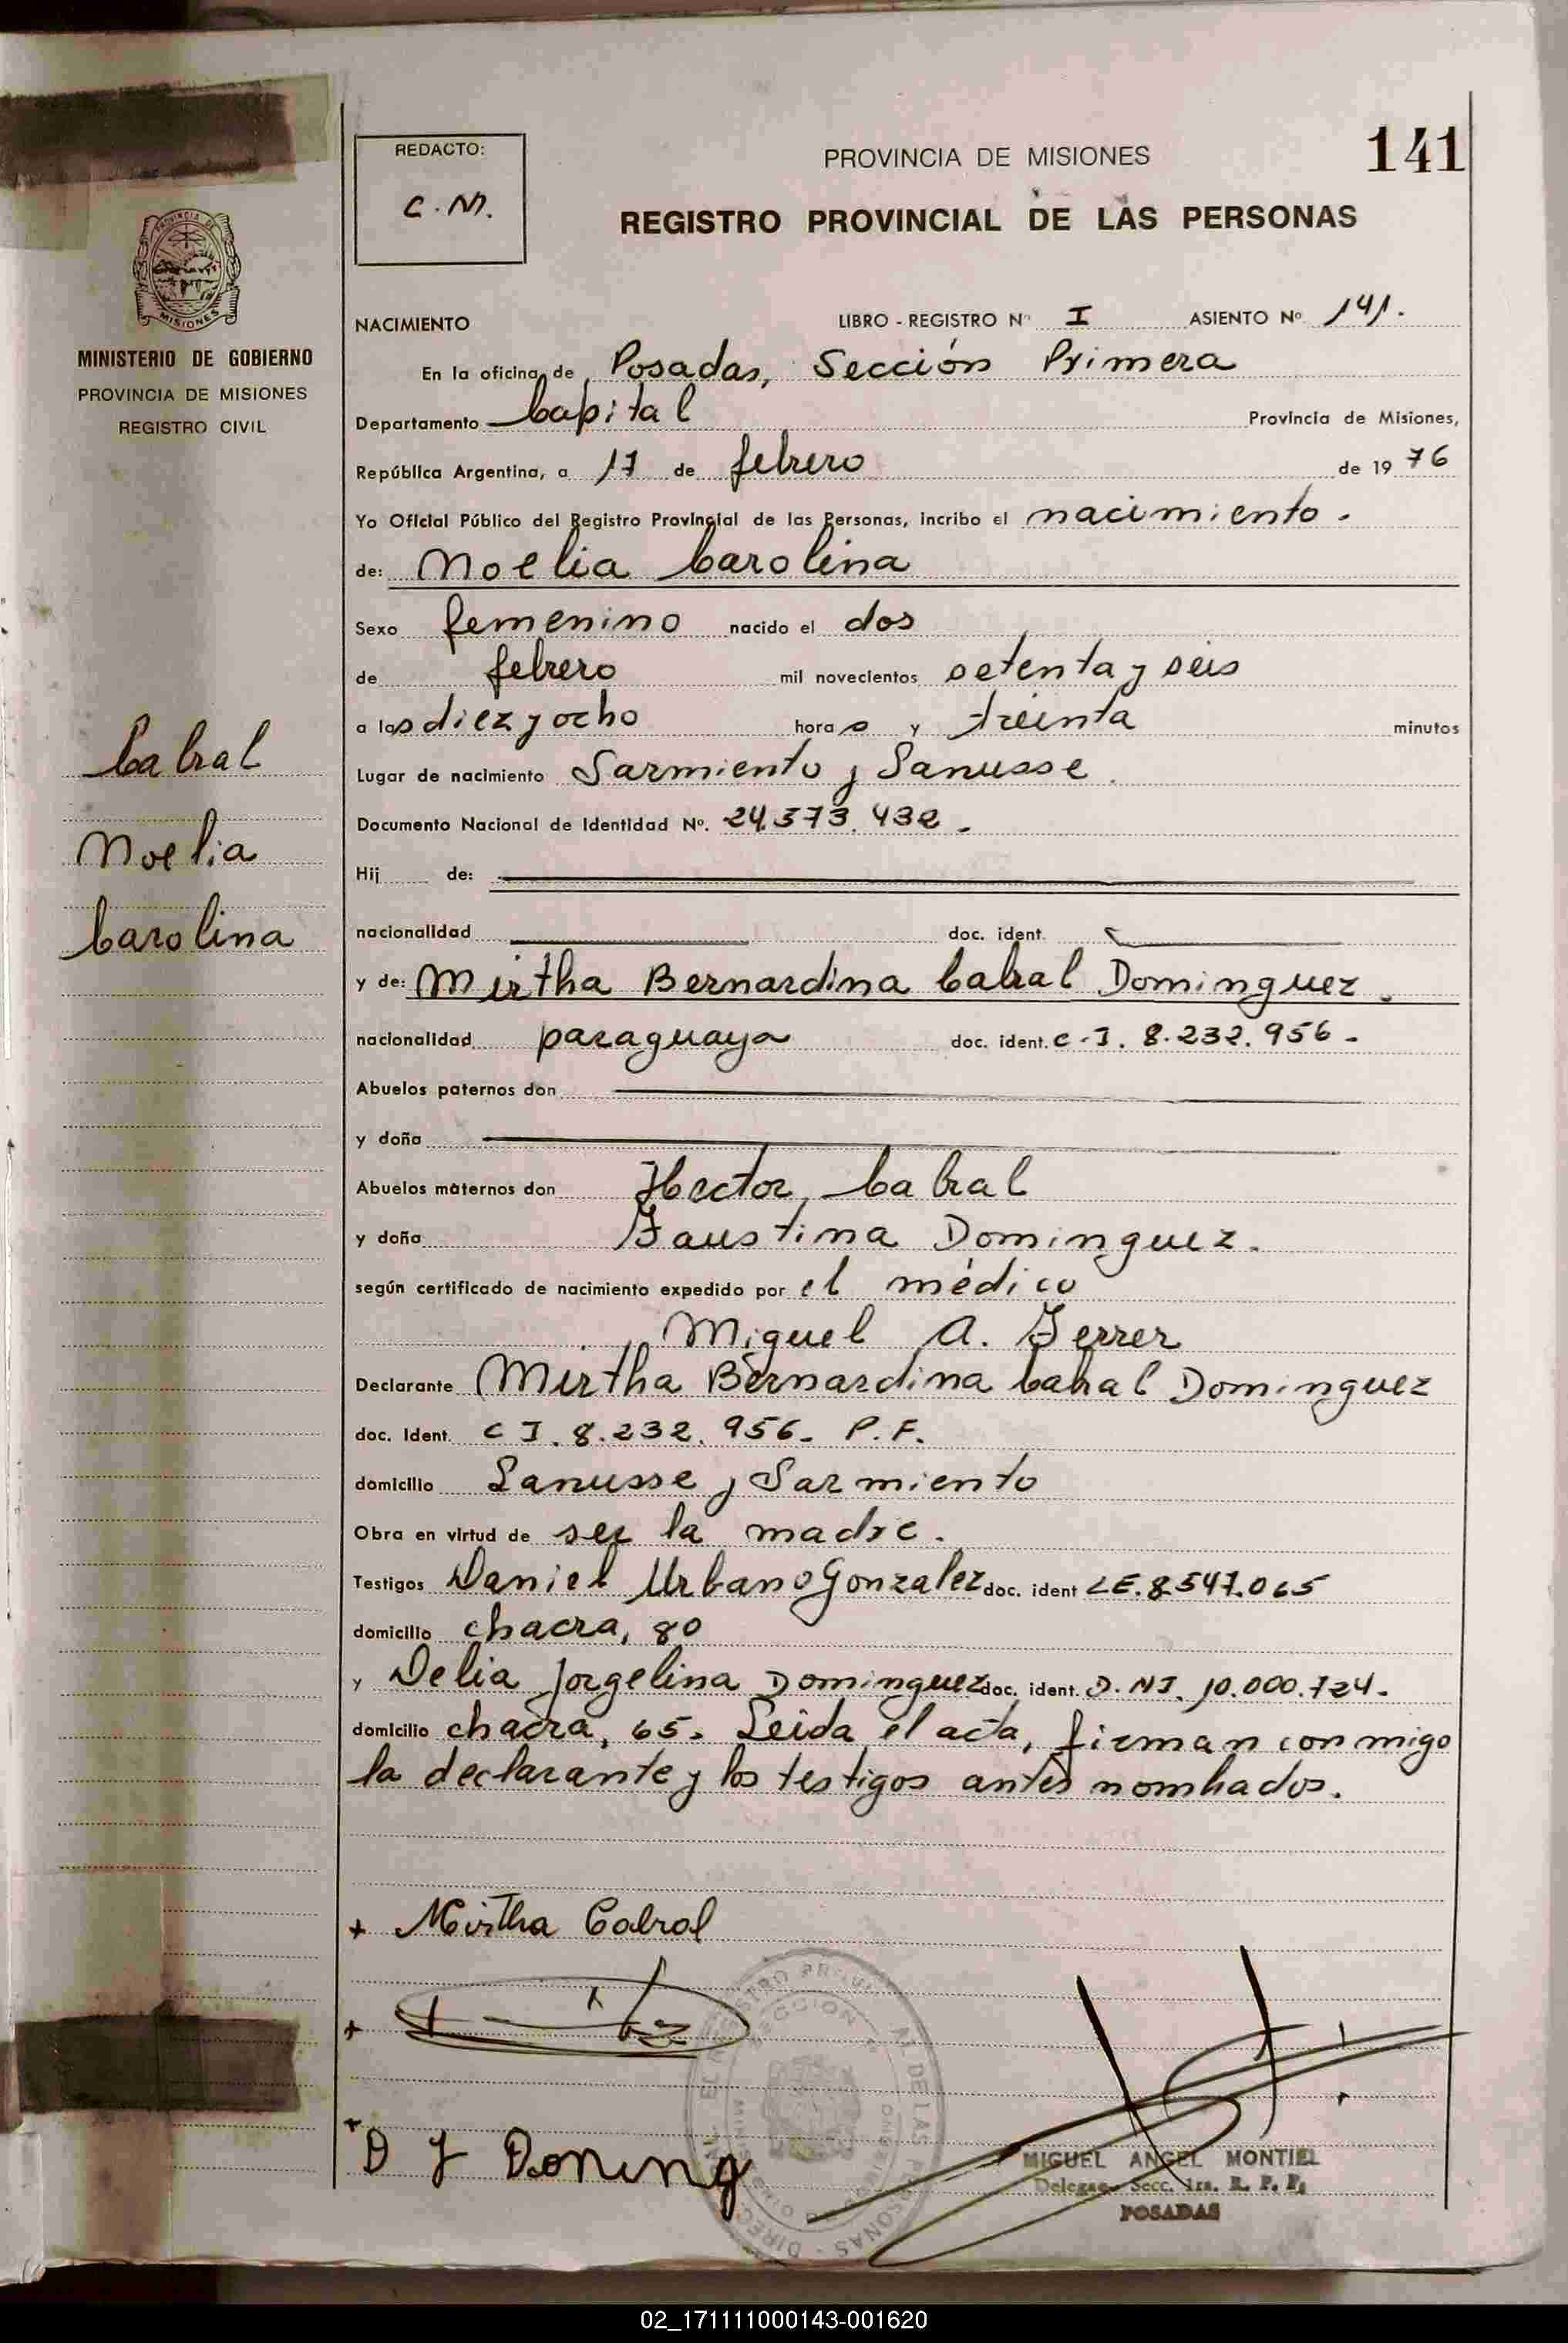 141
REDACTO:
C.M.
PROVINCIA DE MISIONES
REGISTRO PROVINCIAL DE LAS PERSONAS
MINISTERIO DE GOBIERNO
PROVINCIA DE MISIONES
REGISTRO CIVIL
Cabral
Noelia
Carolina
NACIMIENTO LIBRO - REGISTRO Nº I ASIENTO Nº 141.
En la oficina de Posadas, Sección Primera
Departamento Capital Provincia de Misiones,
República Argentina, a 17 de febrero de 1976
Yo Oficial Público del Registro Provincial de las Personas, incribo el nacimiento.
de: Noelia Carolina
Sexo femenino nacido el dos
de febrero mil novecientos setenta y seis
a las diez y ocho horas y treinta minutos
Lugar de nacimiento Sarmiento y Lanusse.
Documento Nacional de Identidad Nº. 24.573.432.
Hij de:
nacionalidad doc. ident.
y de: Mirtha Bernardina Cabral Dominguez.
nacionalidad paraguaya doc. ident. C.I. 8.232.956.
Abuelos paternos don
y doña
Abuelos maternos don Hector Cabral
y doña Faustina Dominguez.
según certificado de nacimiento expedido por el médico
Miguel A. Ferrer
Declarante Mirtha Bernardina Cabral Dominguez
doc. Ident. C I. 8.232.956. P.F.
domicilio Lanusse y Sarmiento
Obra en virtud de ser la madre.
Testigos Daniel Urbano Gonzalez doc. ident LE. 8.547.065
domicilio chacra, 80
y Delia Jorgelina Dominguez doc. ident. D.NI. 10.000.724.
domicilio chacra, 65. Leida el acta, firman conmigo
la declarante y los testigos antes nombrados.
+ Mirtha Cabral
+
+ D J Doming
MIGUEL ANGEL MONTIEL
Delegac. Secc. 1ra. R. P. P.
POSADAS
02_171111000143-001620